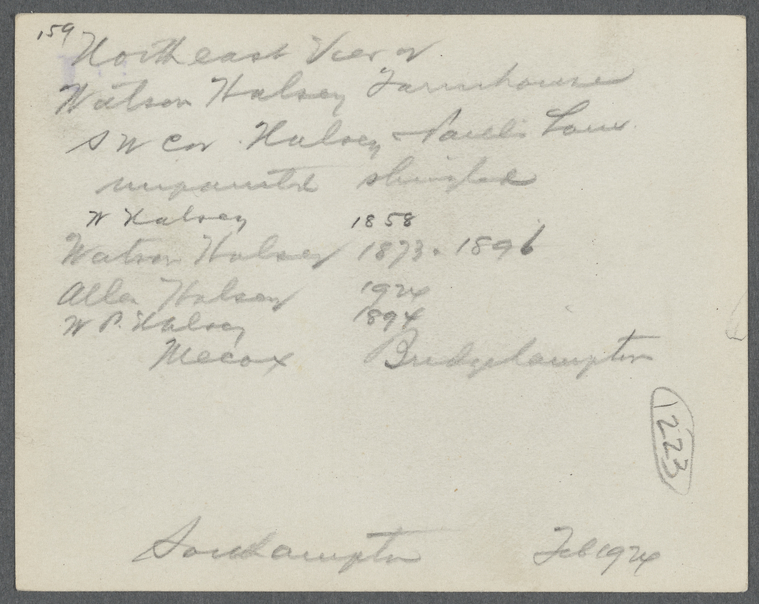 159
Northeast View of
Watson Halsey Farmhouse
S W Cor. Halsey & Pauls Lane
unpainted shingled
W Halsey 1858
Watson Halsey 1873. 1896
Allen Halsey 1924
W P. Halsey 1894
Mecox Bridgehampton
1223
Southampton Feb 1924